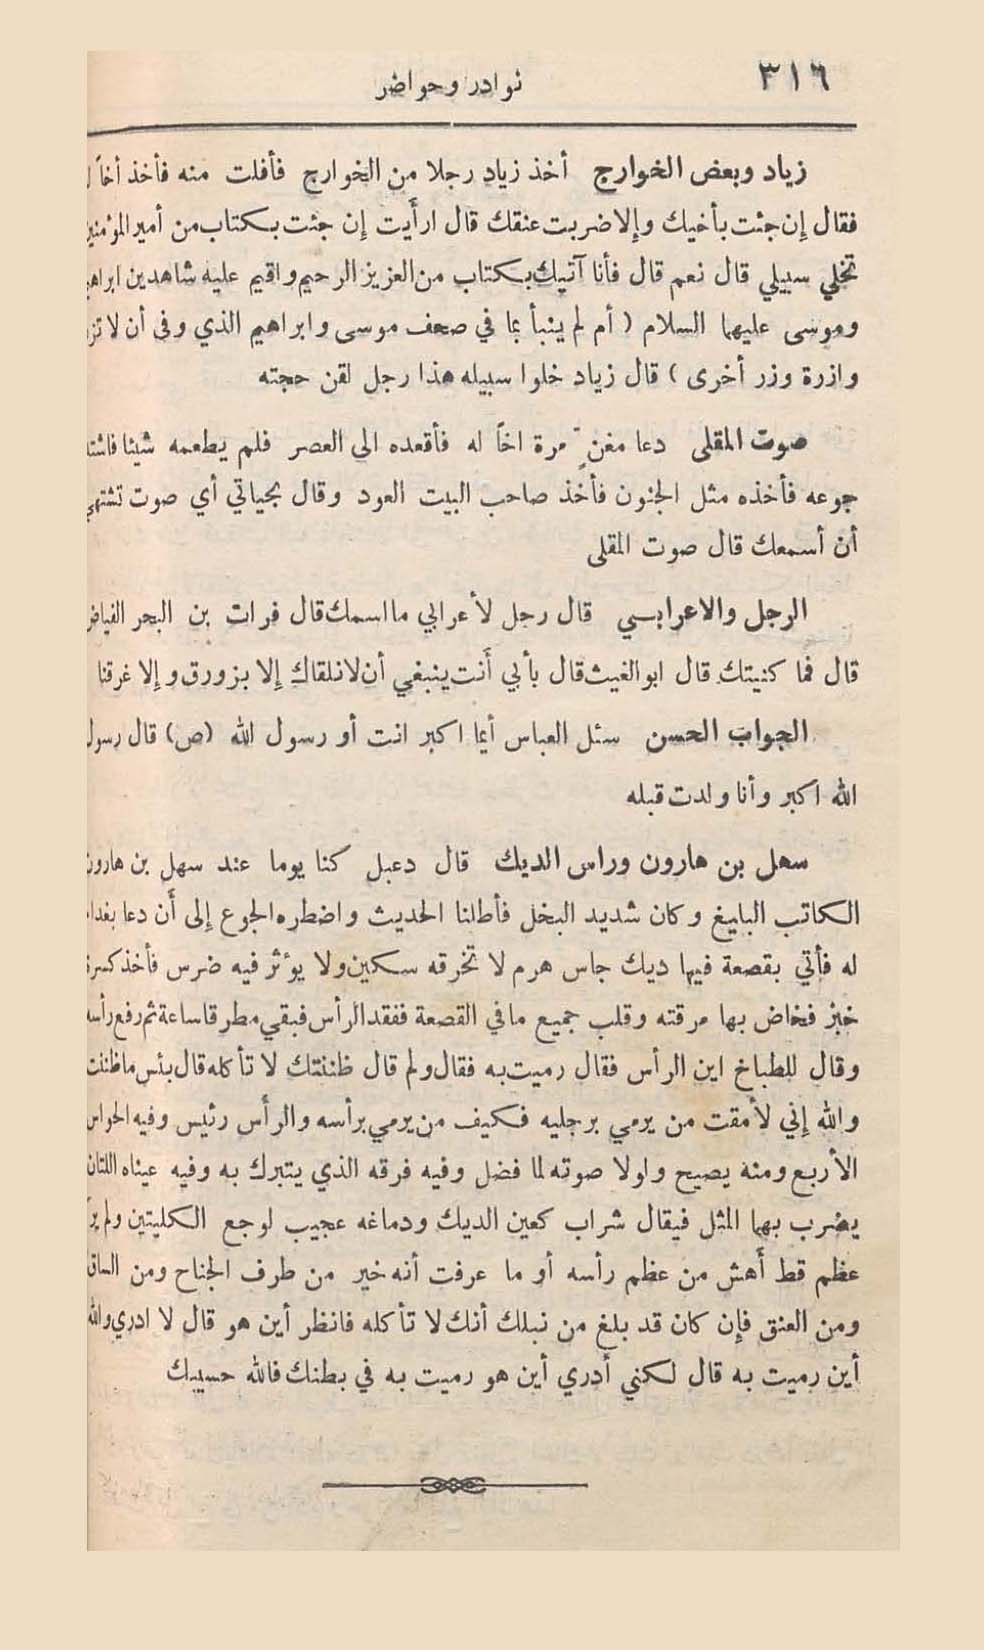 ٣١٦
نوادر وحواضر
زياد وبعض الخوارج أخذ زياد رجلا من الخوارج فأفلت منه فأخذ أخاً
فقال إن جئت بأخيك وإلا ضربت عنقك قال ارأيت إن جئت بكتاب من أمير المؤمنين
تخلي سبيلي قال نعم قال فأنا آتيك بكتاب من العزيز الرحيم واقيم عليه شاهدين
وموسى عليهما السلام ( أم لم ينبأ بما في صحف موسى وابراهيم الذي وفى أن لا
وازرة وزر أخرى ) قال زياد خلوا سبيله هذا رجل لقن حجته
صوت المقلى دعا مغنٍ مرة اخاً له فأقعده الى العصر فلم يطعمه شيئا
جوعه فأخذه مثل الجنون فأخذ صاحب البيت العود وقال بحياتي أي صوت تشتهي
أن أسمعك قال صوت المقلى
الرجل والاعرابي قال رجل لأعرابي ما اسمك قال فرات بن البحر الفياض
قال فما كنيتك قال ابو الغيث قال بأبي أَنت ينبغي أن لا نلقاك إلا بزورق وإلا غرقنا
الجواب الحسن سئل العباس أيما اكبر انت أو رسول الله (ص) قال رسول
الله اكبر وأنا ولدت قبله
سهل بن هارون وراس الديك قال دعبل كنا يوما عند سهل بن هارون
الكاتب البليغ وكان شديد البخل فأطلنا الحديث واضطره الجوع إلى أَن دعا
له فأتي بقصعة فيها ديك جاس هرم لا تخرقه سكين ولا يؤثر فيه ضرس فأخذ كسرة
خبز فخاض بها مرقته وقلب جميع ما في القصعة ففقد الرأس فبقي مطرقا ساعة ثم رفع رأسه
وقال للطباخ اين الرأس فقال رميت به فقال ولم قال ظننتك لا تأكله قال بئس ما ظننت
والله إني لأمقت من يرمي برجليه فكيف من يرمي برأسه والرأس رئيس وفيه الحواس
الأربع ومنه يصيح ولولا صوته لما فضل وفيه فرقه الذي يتبرك به وفيه عيناه اللتان
يضرب بهما المثل فيقال شراب كعين الديك ودماغه عجيب لوجع الكليتين ولم
عظم قط أَهش من عظم رأسه أو ما عرفت أنه خير من طرف الجناح ومن الساق
ومن العنق فإن كان قد بلغ من نبلك أنك لا تأكله فانظر أين هو قال لا ادري والله
أين رميت به قال لكني أدري أين هو رميت به في بطنك فالله حسيبك